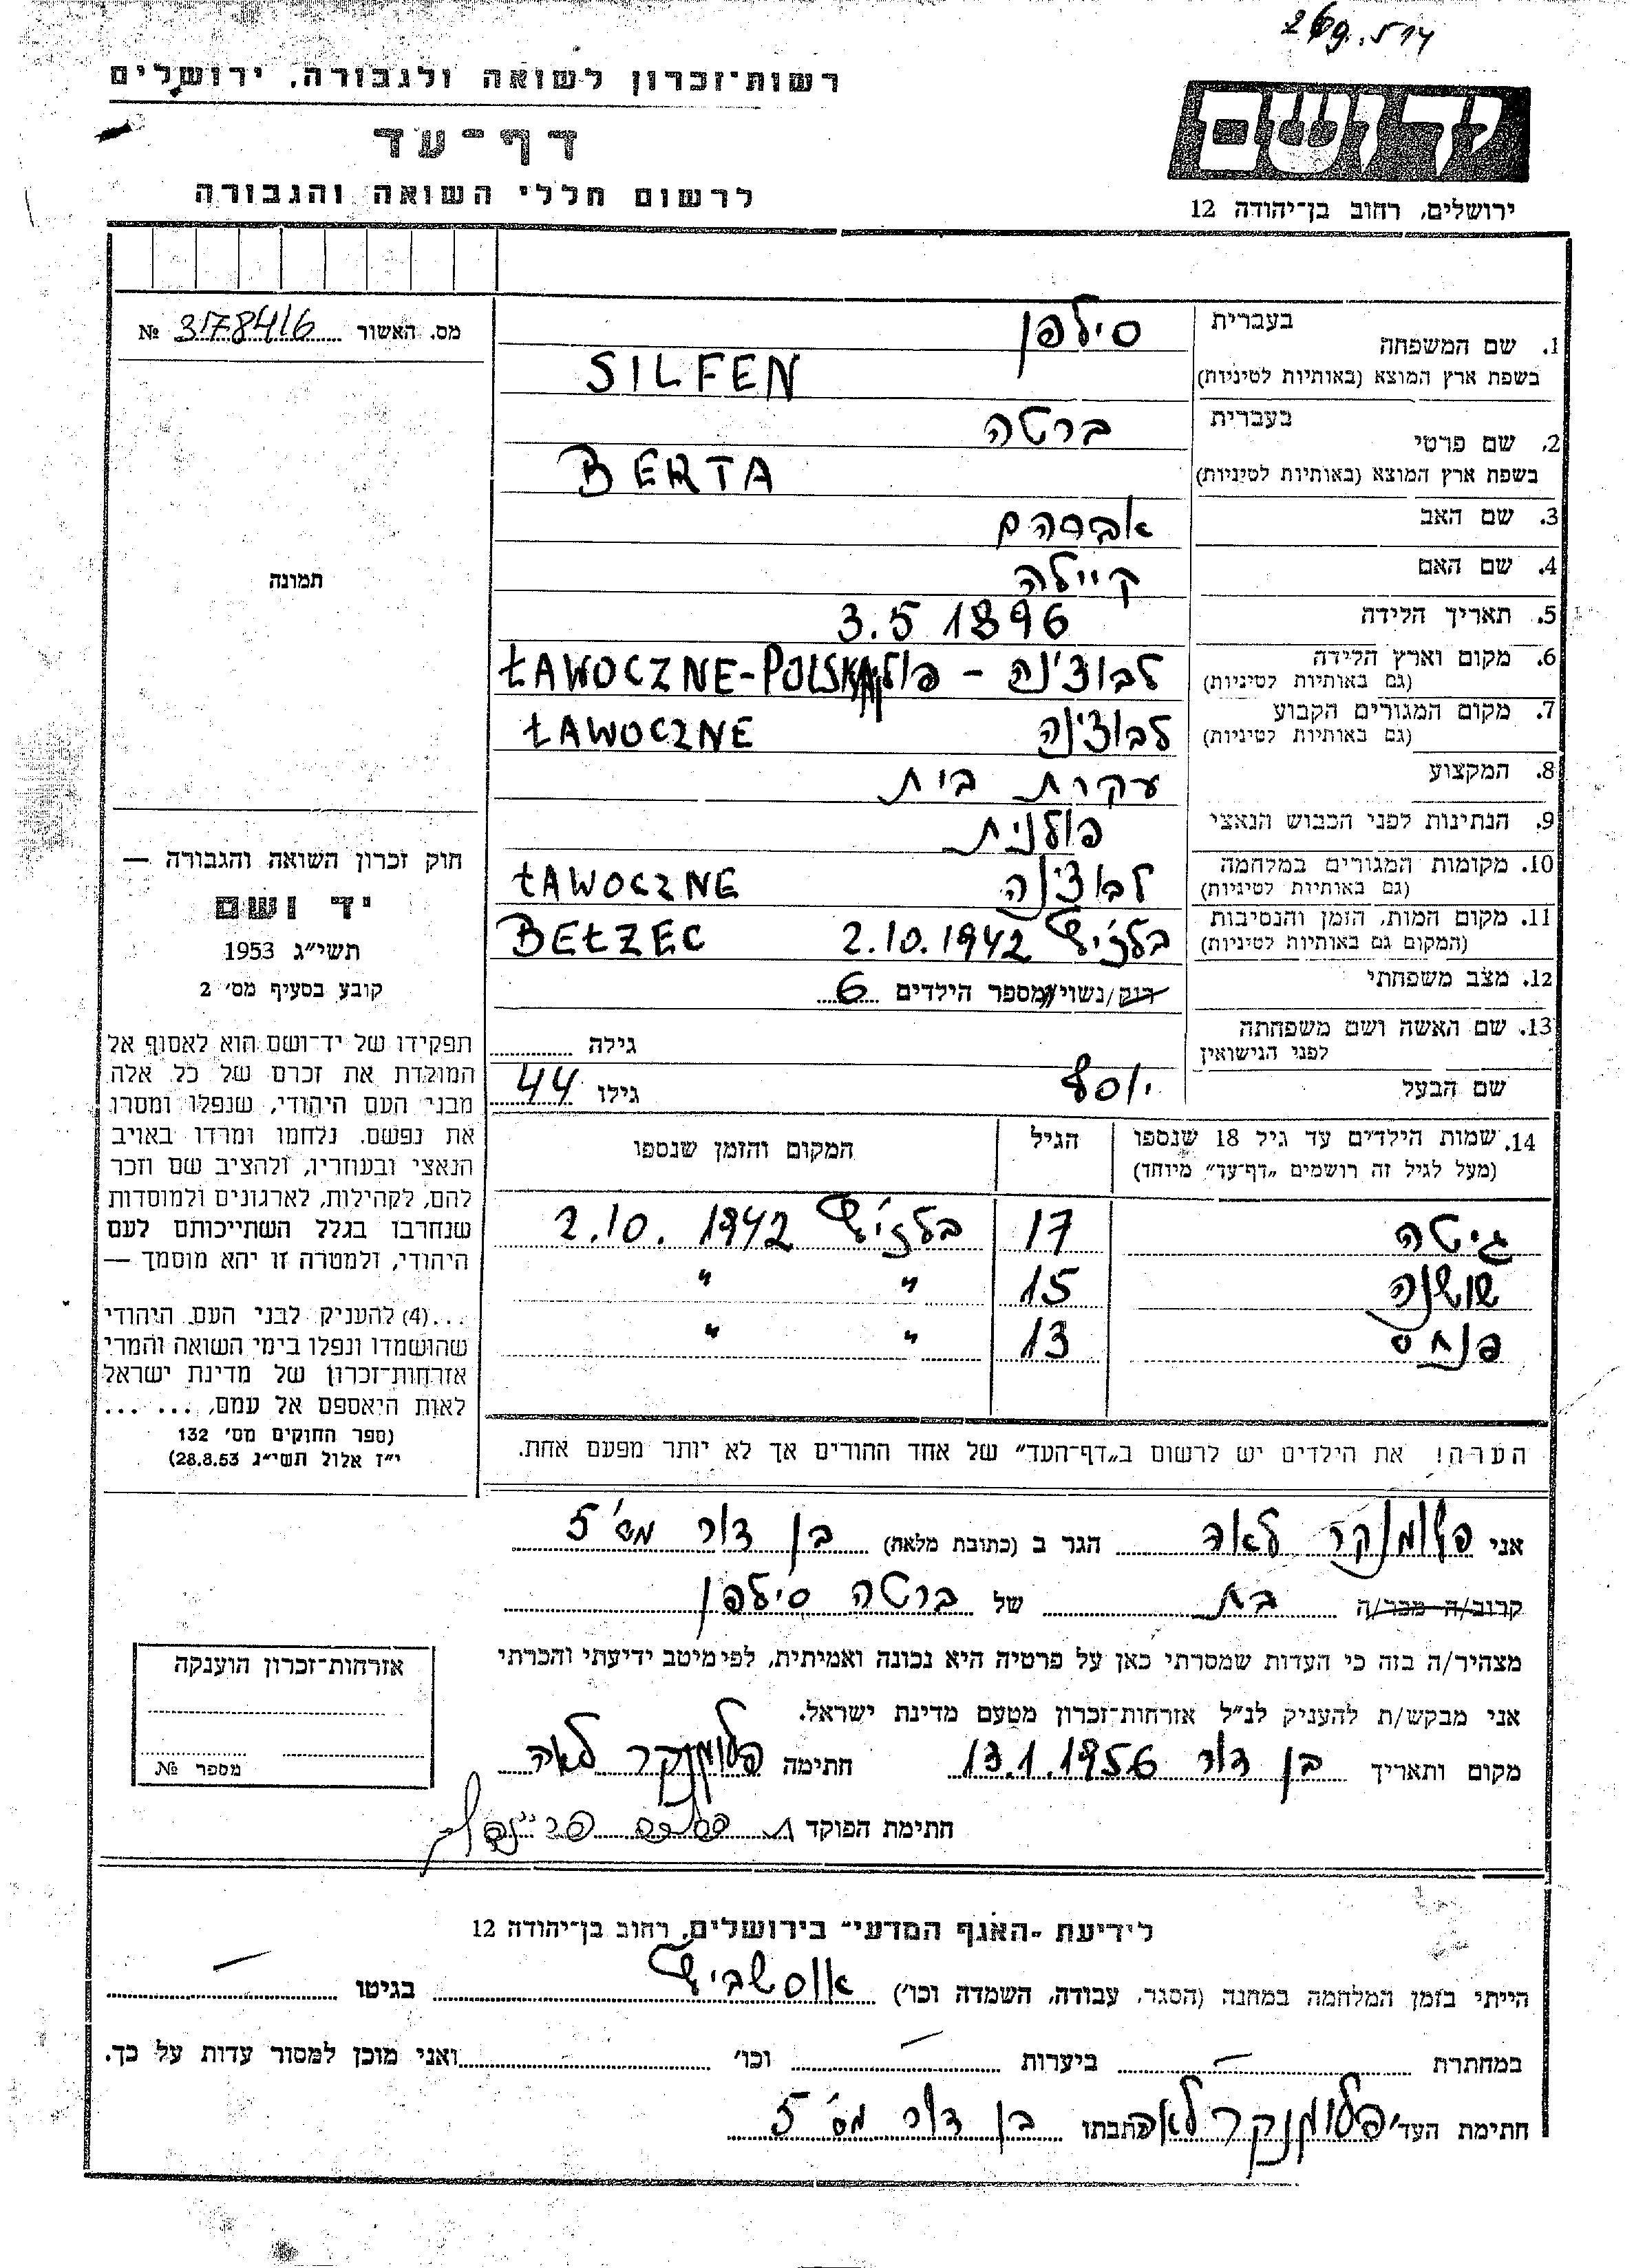 269.514
רשות־זכרון לשואה ולגבורה, ירושלים
יד ושם
דף־עד
לרשום חללי השואה והגבורה
ירושלים, רחוב בן־יהודה 12
מס. האשור 3178416 №
תמונה
חוק זכרון השואה והגבורה —
יד ושם
תשי״ג 1953
קובע בסעיף מס׳ 2
תפקידו של יד־ושם הוא לאסוף אל
המולדת את זכרם של כל אלה
מבני העם היהודי, שנפלו ומסרו
את נפשם, נלחמו ומרדו באויב
הנאצי ובעוזריו, ולהציב שם וזכר
להם, לקהילות, לארגונים ולמוסדות
שנחרבו בגלל השתייכותם לעם
היהודי, ולמטרה זו יהא מוסמך —
...(4) להעניק לבני העם היהודי
שהושמדו ונפלו בימי השואה והמרי
אזרחות־זכרון של מדינת ישראל
לאות היאספם אל עמם, ... ...
(ספר החוקים מס׳ 132
י״ז אלול תשי״ג 28.8.53)
1. שם המשפחה בעברית סילפן
בשפת ארץ המוצא (באותיות לטיניות) SILFEN
2. שם פרטי בעברית ברטה
בשפת ארץ המוצא (באותיות לטיניות) BERTA
3. שם האב אברהם
4. שם האם קיילה
5. תאריך הלידה 3.5 1896
6. מקום וארץ הלידה (גם באותיות לטיניות) לבוצ׳נה - ŁAWOCZNE-POLSKA
7. מקום המגורים הקבוע (גם באותיות לטיניות) לבוצ׳נה ŁAWOCZNE
8. המקצוע עקרת בית
9. הנתינות לפני הכבוש הנאצי פולנית
10. מקומות המגורים במלחמה (גם באותיות לטיניות) לבוצ׳נה ŁAWOCZNE
11. מקום המות, הזמן והנסיבות (המקום גם באותיות לטיניות) בלז׳יץ 2.10.1942 BEŁZEC
12. מצב משפחתי רוק/נשוי/ מספר הילדים 6
13. שם האשה ושם משפחתה לפני הנישואין גילה
שם הבעל יוסף גילו 44
14. שמות הילדים עד גיל 18 שנספו הגיל המקום והזמן שנספו
(מעל לגיל זה רושמים „דף־עד״ מיוחד)
גיטה 17 בלז׳יץ 2.10.1942
שושנה 15 " "
פנחס 13 " "
הערה! את הילדים יש לרשום ב„דף־העד״ של אחד ההורים אך לא יותר מפעם אחת.
אני פלומנקר לאה הגר ב (כתובת מלאה) בן דור מס׳ 5
קרוב/ה מכר/ה בת של ברטה סילפן
מצהיר/ה בזה כי העדות שמסרתי כאן על פרטיה היא נכונה ואמיתית, לפי מיטב ידיעתי והכרתי
אני מבקש/ת להעניק לנ״ל אזרחות־זכרון מטעם מדינת ישראל.
מקום ותאריך בן דור 13.1.1956 חתימה פלומנקר לאה
חתימת הפוקד
אזרחות־זכרון הוענקה
מספר №
לידיעת „האגף המדעי״ בירושלים, רחוב בן־יהודה 12
הייתי בזמן המלחמה במחנה (הסגר, עבודה, השמדה וכו׳) אוסשביץ בגיטו —
במחתרת — ביערות — וכו׳ ואני מוכן למסור עדות על כך.
חתימת העד׳ פלומנקר לאה כתבתו בן דור מס׳ 5